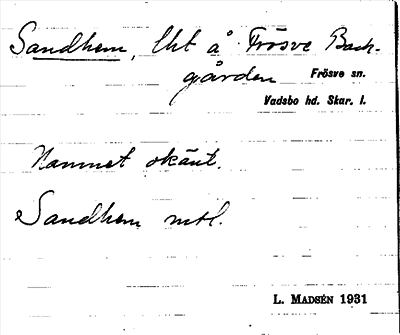 Sandhem, lht å Frösve Back-
gården Frösve sn.
Vadsbo hd. Skar. l.
Namnet okänt.
Sandhem mtl.
L. MADSÉN 1931